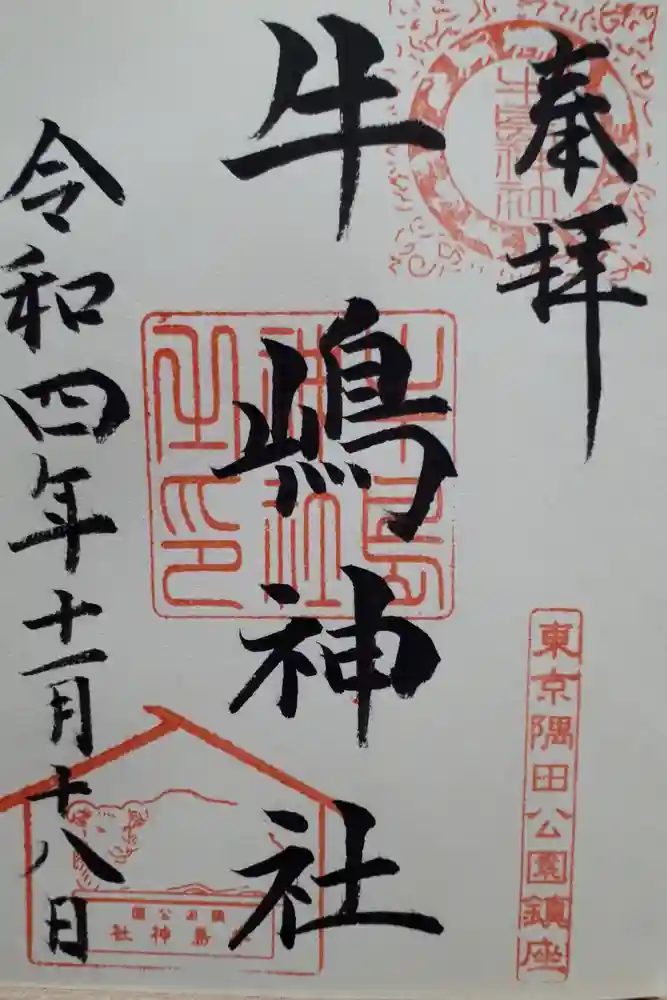 奉拝
東京隅田公園鎮座
牛嶋神社
牛島神社之印
令和四年十一月十八日
隅田公園
牛島神社